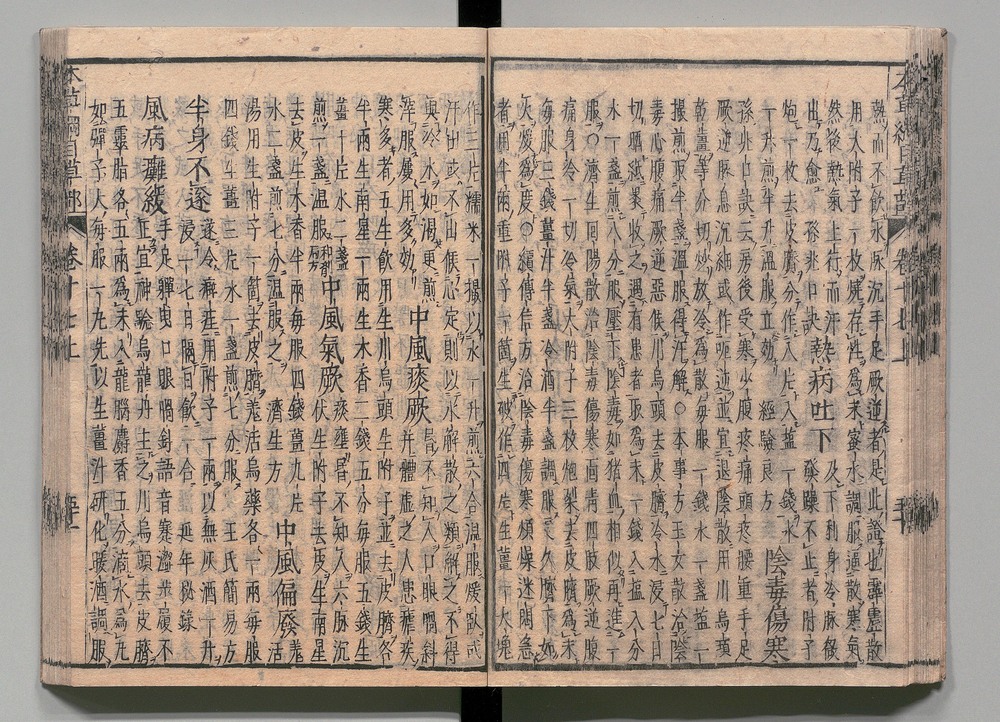 本草綱目草部 卷十七上
熱而不飲水脉沉手足厥逆者是此證也霹靂散
用大附子一枚燒存性爲末蜜水調服逼散寒氣
然後熱氣上行而汗
出乃愈 孫兆口訣
熱病吐下
及下利身冷脉微
發躁不止者附子
炮一枚去皮臍分作八片入鹽一錢水
一升煎半升溫服立效 經驗良方
陰毒傷寒
孫兆口訣云房後受寒少腹疼痛頭疼腰重手足
厥逆脉息沉細或作呃逆並宜退陰散用川烏頭
乾薑等分切炒放冷爲散每服一錢水一盞鹽一
撮煎取半盞溫服得汗解○本事方玉女散治陰
毒心腹痛厥逆惡候川烏頭去皮臍冷水浸七日
切晒紙裹收之遇有患者取爲末一錢入鹽八分
水一盞煎八分服壓下陰毒如猪血相似再進一
服○濟生回陽散治陰毒傷寒面青四肢厥逆腹
痛身冷一切冷氣大附子三枚炮裂去皮臍爲末
每服三錢薑汁半盞冷酒半盞調服良久臍下如
火煖爲度○續傳信方治陰毒傷寒煩燥迷悶急
者用半兩重附子一箇生破作四片生薑一大塊
作三片糯米一撮以水一升煎六合溫服煖卧或
汗出或不出候心定則以水解散之類解之不得
與冷水如渴更煎
滓服屢用多效
中風痰厥
昏不知人口眼喎斜
并體虛之人患瘧疾
寒多者三生飲用生川烏頭生附子並去皮臍各
半兩生南星一兩生木香二錢五分每服五錢生
薑十片水二盞
煎一盞溫服 和劑局方
中風氣厥
痰壅昏不知人六脉沉
伏生附子去皮生南星
去皮生木香半兩每服四錢薑九片
水二盞煎七分溫服之 濟生方
中風偏廢
羗活
湯用生附子一箇去皮臍羗活烏藥各一兩每服
四錢生薑三片水一盞煎七分服 王氏簡易方
半身不遂
遂冷癖疰用附子一兩以無灰酒一升
浸一七日隔日飲一合 延年秘錄
風病癱緩
手足嚲曳口眼喎斜語音蹇澀步履不
正宜神驗烏龍丹主之川烏頭去皮臍
五靈脂各五兩爲末入龍腦麝香五分滴水爲丸
如彈子大每服一丸先以生薑汁研化暖酒調服
本草綱目草部 卷十七上